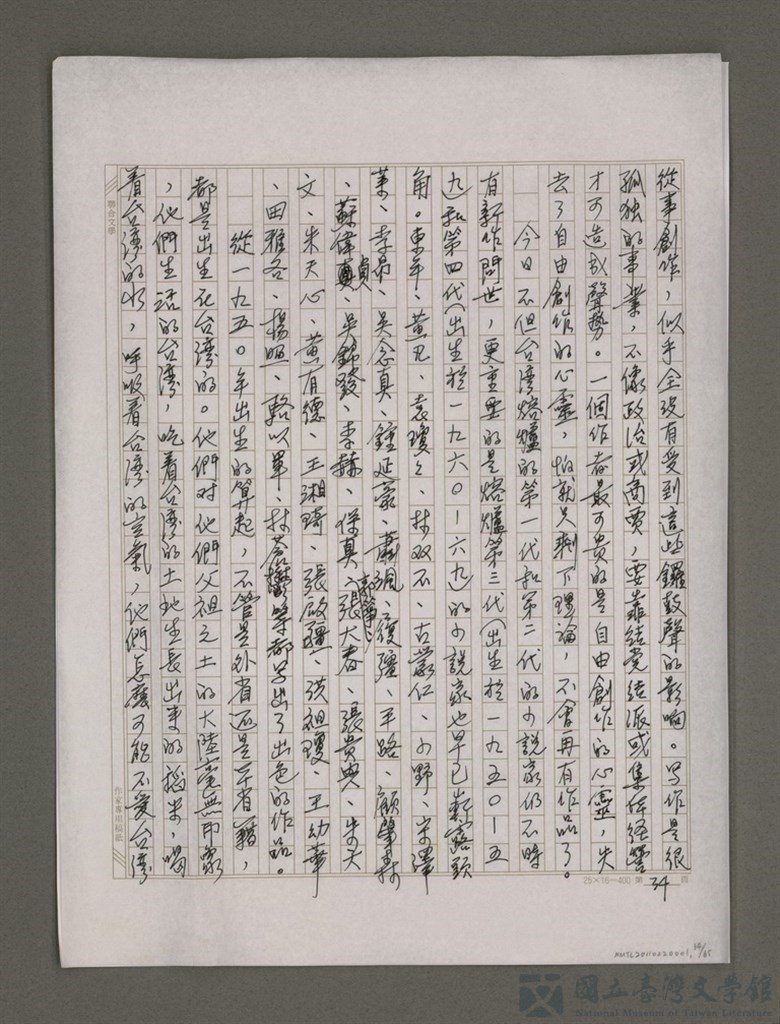 從事創作，似乎全沒有受到這些鑼鼓聲的影响。写作是很
孤独的事業，不像政治或商賈，要靠结党结派或集体经营
才可造成聲勢。一個作者最可贵的是自由創作的心靈，失
去了自由創作的心靈，怕就只剩下理論，不會再有作品了。
今日不但台湾熔爐的第一代和第二代的小説家仍不時
有新作問世，更重要的是熔爐第三代（出生於一九五〇－五
九）和第四代（出生於一九六〇－六九）的小説家也早已嶄露頭
角。東年、黃凡、袁瓊瓊、林双不、古蒙仁、小野、宋澤
萊、李昂、吳念真、鍾延豪、蕭颯、履彊、平路、顧肇森
、蘇偉貞、吳錦發、李赫、保真、張大春、張貴興、朱天
文、朱天心、黃有德、王湘琦、張啟疆、洪祖瓊、王幼華
、田雅各、楊照、駱以軍、林蒼鬱等都写出了出色的作品。
從一九五〇年出生的算起，不管是外省还是本省籍，
都是出生在台湾的。他們对他們父祖之土的大陸毫無印象
，他們生活的台湾，吃着台湾的土地生長出來的稻米，喝
着台湾的水，呼吸着台湾的空氣，他們怎麼可能不愛台湾
聯合文學
作家專用稿紙
25×16＝400 第 34 頁
NMTL20110220001, 14/65
國立臺灣文學館
National Museum of Taiwan Literature